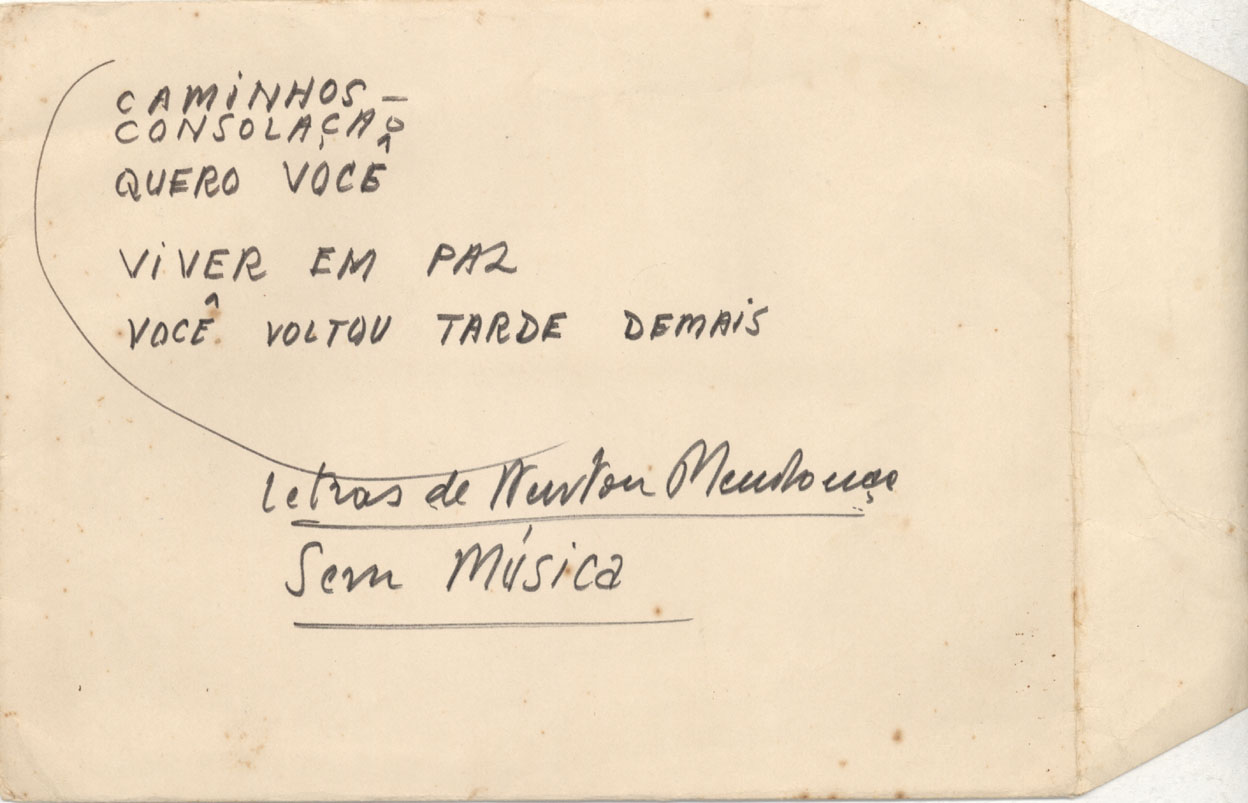 CAMINHOS –
CONSOLAÇAO
QUERO VOCÊ
VIVER EM PAZ
VOCÊ VOLTOU TARDE DEMAIS
Letras de Newton Mendonça
Sem Música